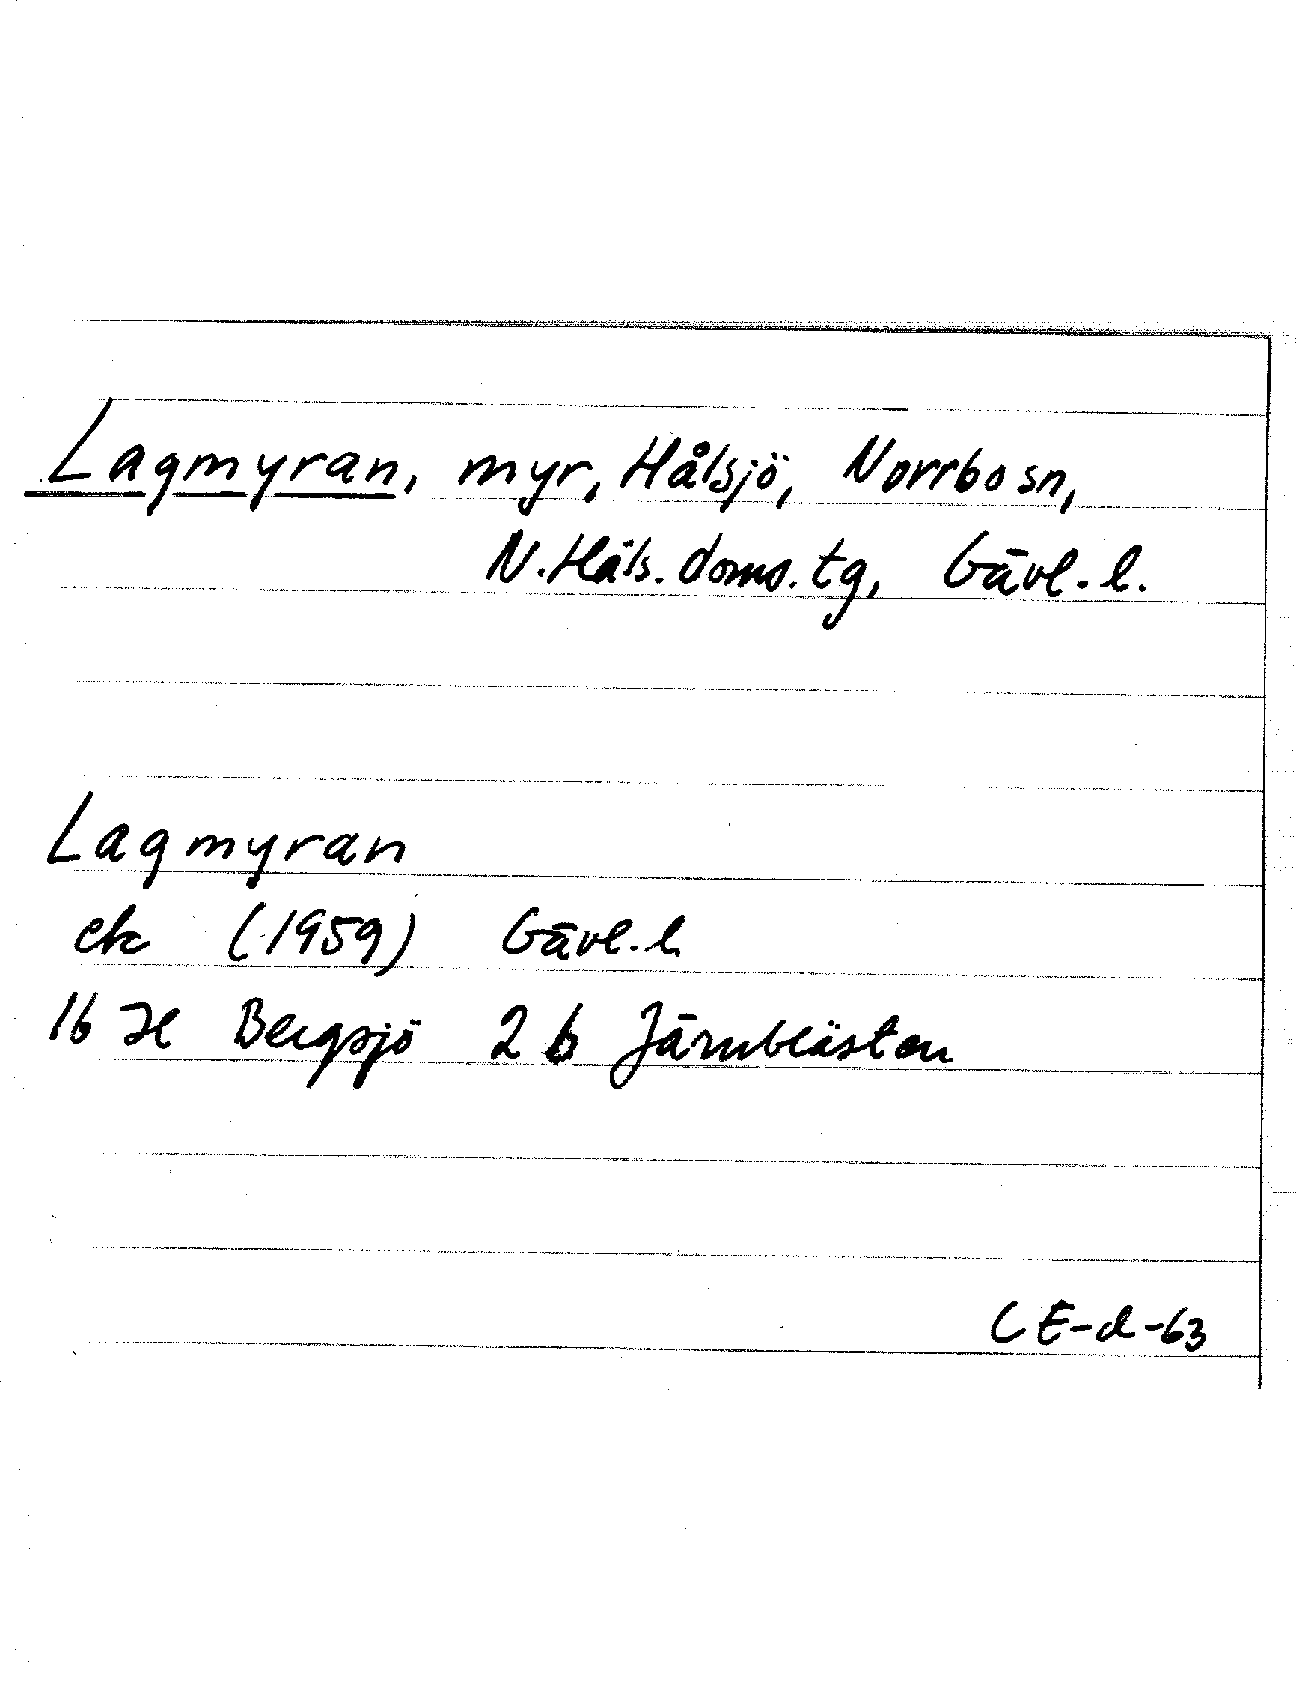 Lagmyran, myr, Hålsjö, Norrbo sn,
N. Häls. doms. tg, Gävl. l.
Lagmyran
ek (1959) Gävl. l.
16 H Bergsjö 2 b Järnblästen
CE-d-63